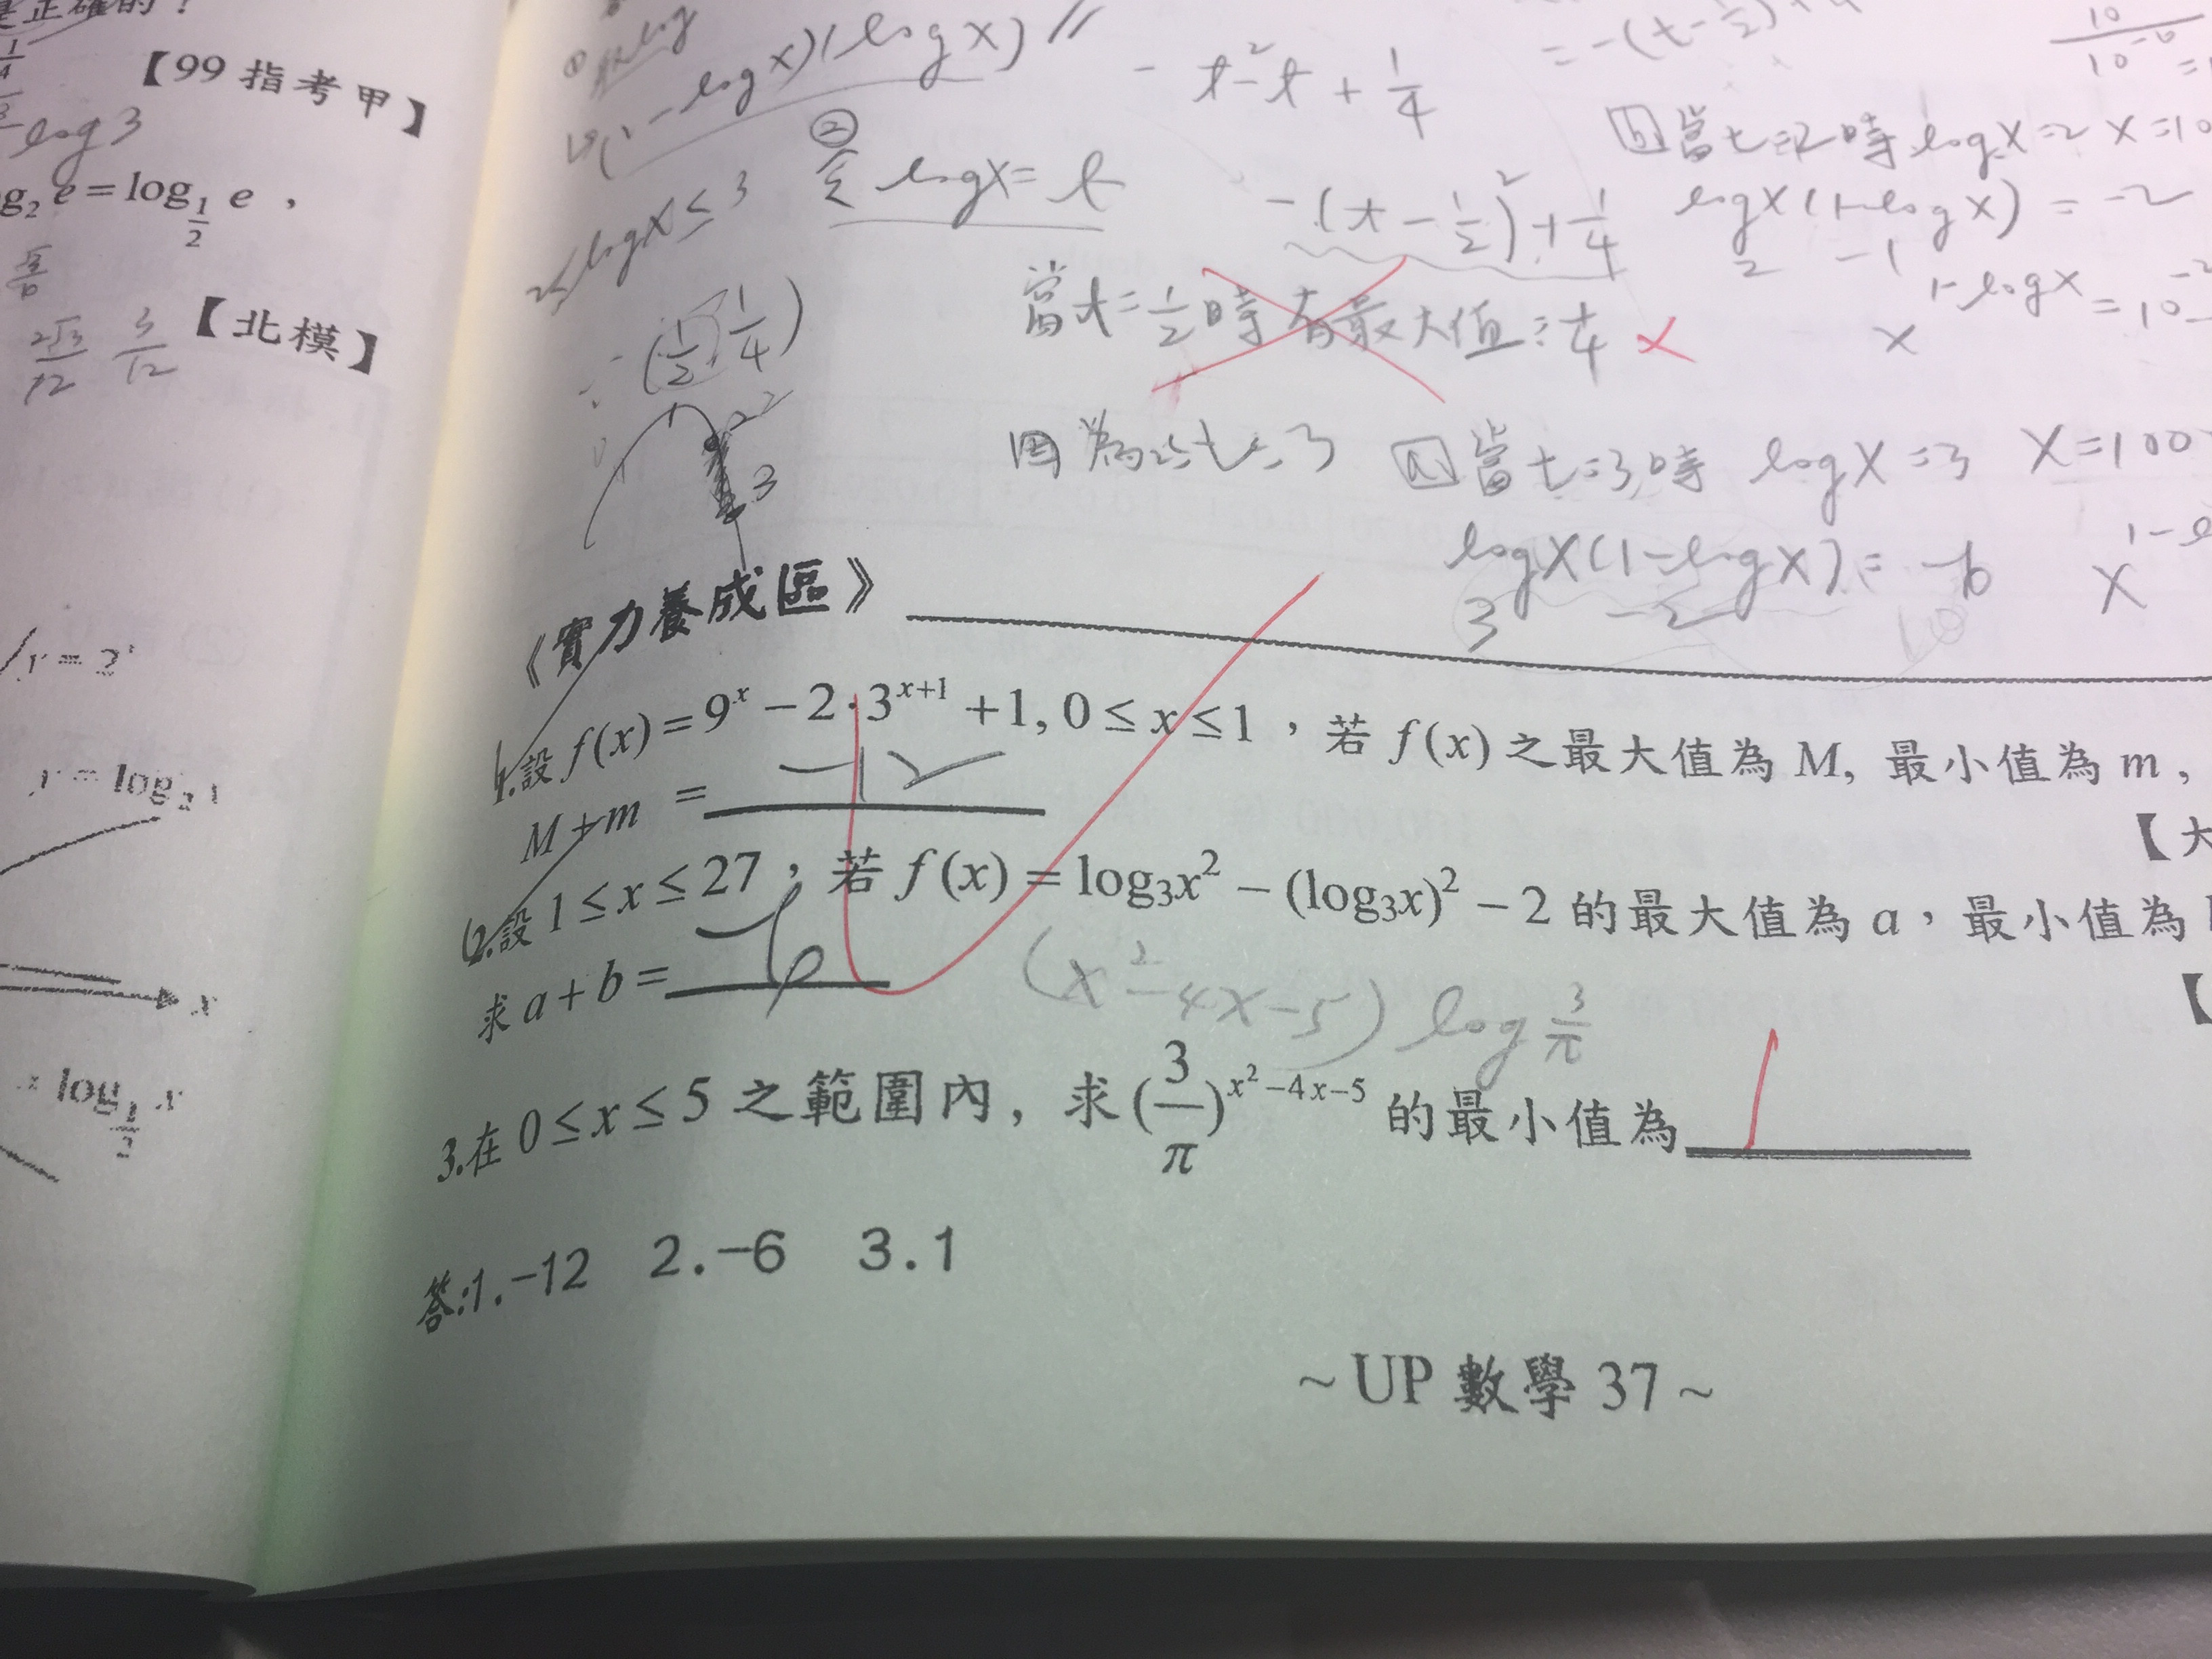 是正確的？
【99 指考甲】
log 3
log₂ e = log_{1/2} e ，
【北模】
y = 2ˣ
y = log₂ x
x
log_{1/2} x
① 取 log
(1-logx)(logx) //
2≤logx≤3
② 令 logx = t
- t²-t + 1/4
-(t-1/2)²+1/4
= -(t-1/2)²+
當t=1/2時有最大值=1/4 ×
(1/2, 1/4)
2
3
因為2≤t≤3
當t=2時 logx=2 x=10
logx(1-logx) = -2
2 -1
x^{1-logx} = 10^{-2}
當t=3時 logx=3 x=100
logx(1-logx) = -6
3 -2
《實力養成區》
1.設 f(x) = 9ˣ − 2·3ˣ⁺¹ + 1, 0 ≤ x ≤ 1 ，若 f(x) 之最大值為 M, 最小值為 m，
M + m = -12
【大
2.設 1 ≤ x ≤ 27，若 f(x) = log₃x² − (log₃x)² − 2 的最大值為 a，最小值為
求 a + b = -6
【
(x²-4x-5) log 3/π
3.在 0 ≤ x ≤ 5 之範圍內, 求 (3/π)^{x²−4x−5} 的最小值為
答:1.-12 2.-6 3.1
~ UP 數學 37 ~